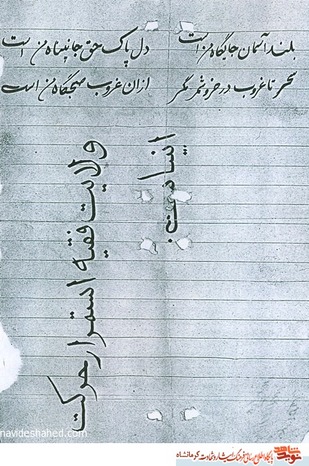 بلند آسمان جایگاه من است
دل پاک حق جانپناه من است
سحر تا غروب در خروشم مگر
از آن غروب صبحگاه من است
ولایت فقیه استمرار حرکت
انبیا است.
navideshahed.com
نوید شاهد